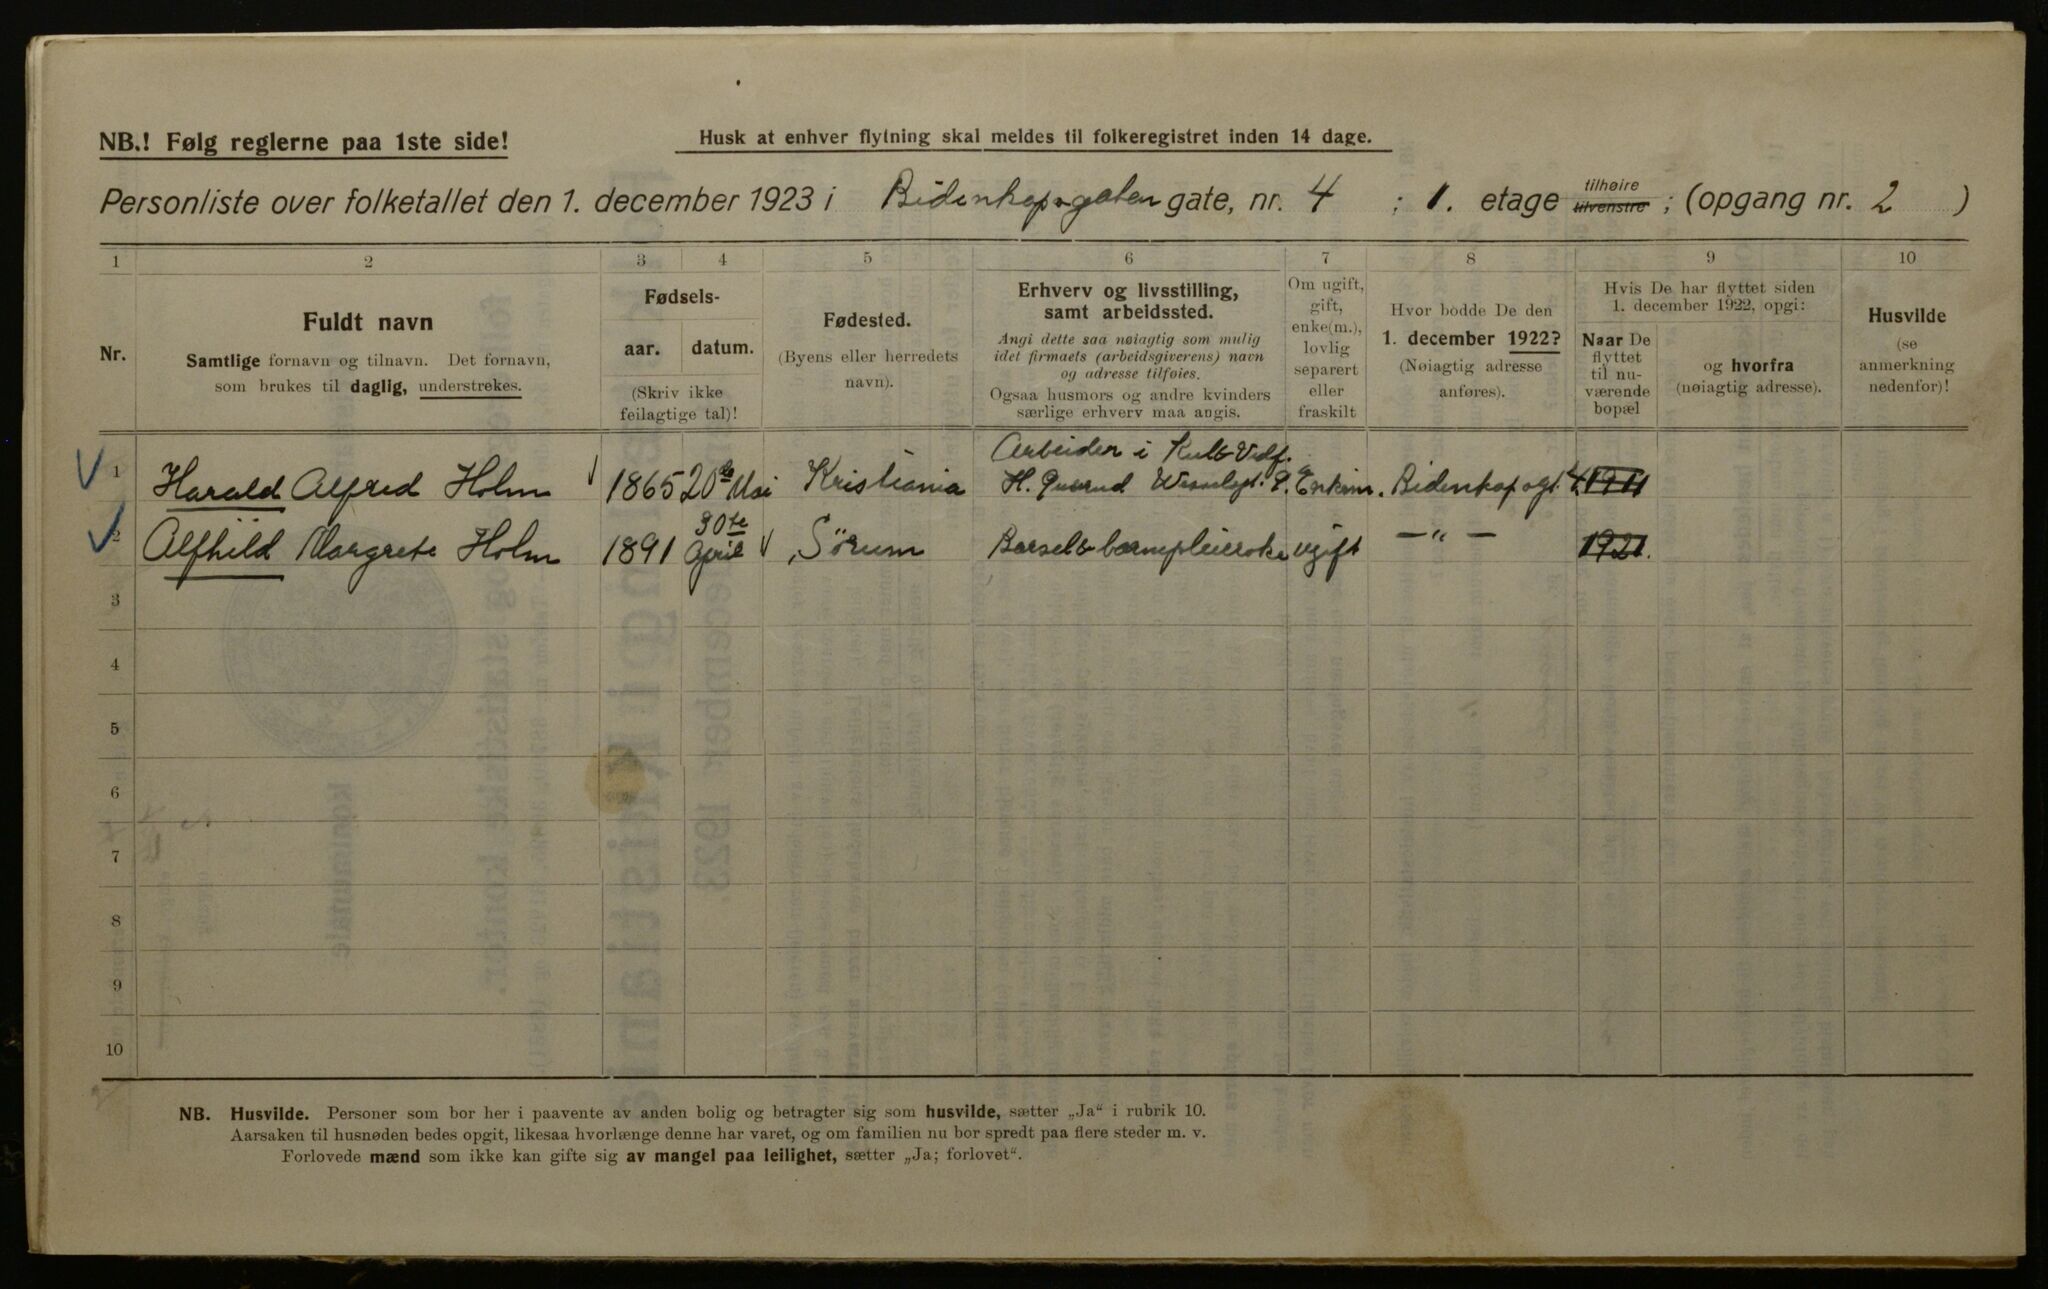 NB.! Følg reglerne paa 1ste side!
Husk at enhver flytning skal meldes til folkeregistret inden 14 dage.
Personliste over folketallet den 1. december 1923 i Bidenkapsgaten gate, nr. 4 ; 1. etage tilhøire tilvenstre ; (opgang nr. 2 )
1 2 3 4 5 6 7 8 9 10
Nr.
Fuldt navn
Samtlige fornavn og tilnavn. Det fornavn,
som brukes til daglig, understrekes.
Fødsels-
aar. datum.
(Skriv ikke
feilagtige tal)!
Fødested.
(Byens eller herredets
navn).
Erhverv og livsstilling,
samt arbeidssted.
Angi dette saa nøiagtig som mulig
idet firmaets (arbeidsgiverens) navn
og adresse tilføies.
Ogsaa husmors og andre kvinders
særlige erhverv maa angis.
Om ugift,
gift,
enke(m.),
lovlig
separert
eller
fraskilt
Hvor bodde De den
1. december 1922?
(Nøiagtig adresse
anføres).
Hvis De har flyttet siden
1. december 1922, opgi:
Naar De
flyttet
til nu-
værende
bopæl
og hvorfra
(nøiagtig adresse).
Husvilde
(se
anmerkning
nedenfor)!
Arbeider i Kul & Vedf.
1 Harald Alfred Holm 1865 20de Mai Kristiania H. Wesselsgt. Enkem. Bidenkapsgt. 4 1911
2 Alfhild Margrete Holm 1891 30te April Sørum Barsel & barnepleierske ugift —„— 1921.
3
4
5
6
7
8
9
10
NB. Husvilde. Personer som bor her i paavente av anden bolig og betragter sig som husvilde, sætter „Ja“ i rubrik 10.
Aarsaken til husnøden bedes opgit, likesaa hvorlænge denne har varet, og om familien nu bor spredt paa flere steder m. v.
Forlovede mænd som ikke kan gifte sig av mangel paa leilighet, sætter „Ja; forlovet“.